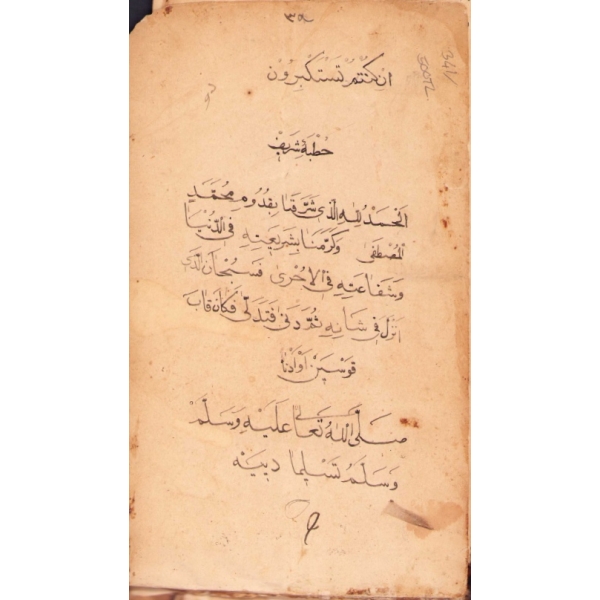 ٣٩
341
500TL
ان كنتم تستكبرون
خطبهٔ شريف
الحمد لله الذى شرفنا بقدوم محمد
المصطفى وكرمنا بشريعته فى الدنيا
وشفاعته فى الاخرى فسبحان الذى
انزل فى شانه ثم دنى فتدلى فكان قاب
قوسين اوادنا
صلى الله تعالى عليه وسلم
وسلم تسليما دييه